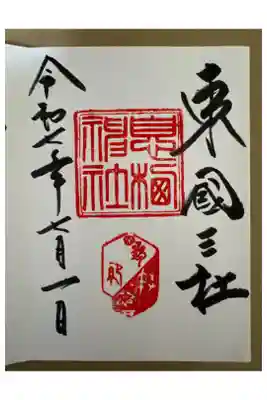 東國三社
息栖
神社
令和七年七月一日